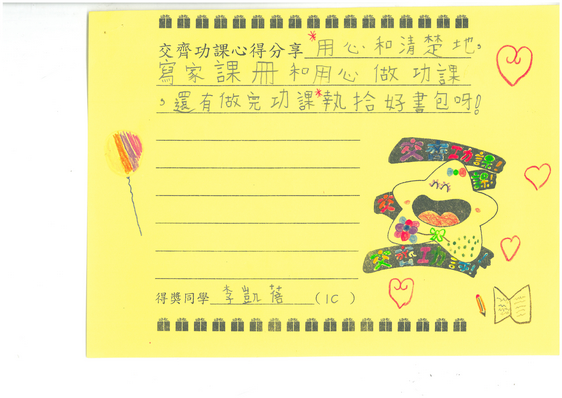 交齊功課心得分享 *用心和清楚地,
寫家課冊和用心做功課
,還有做完功課*執拾好書包呀!
交齊功課
課
交齊功課
得獎同學 李凱蓓 (1C)